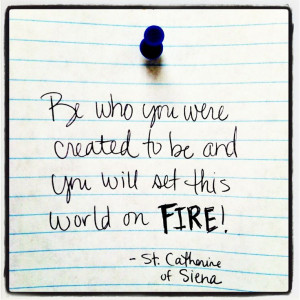 Be who you were
created to be and
you will set this
world on FIRE!
- St. Catherine
of Siena